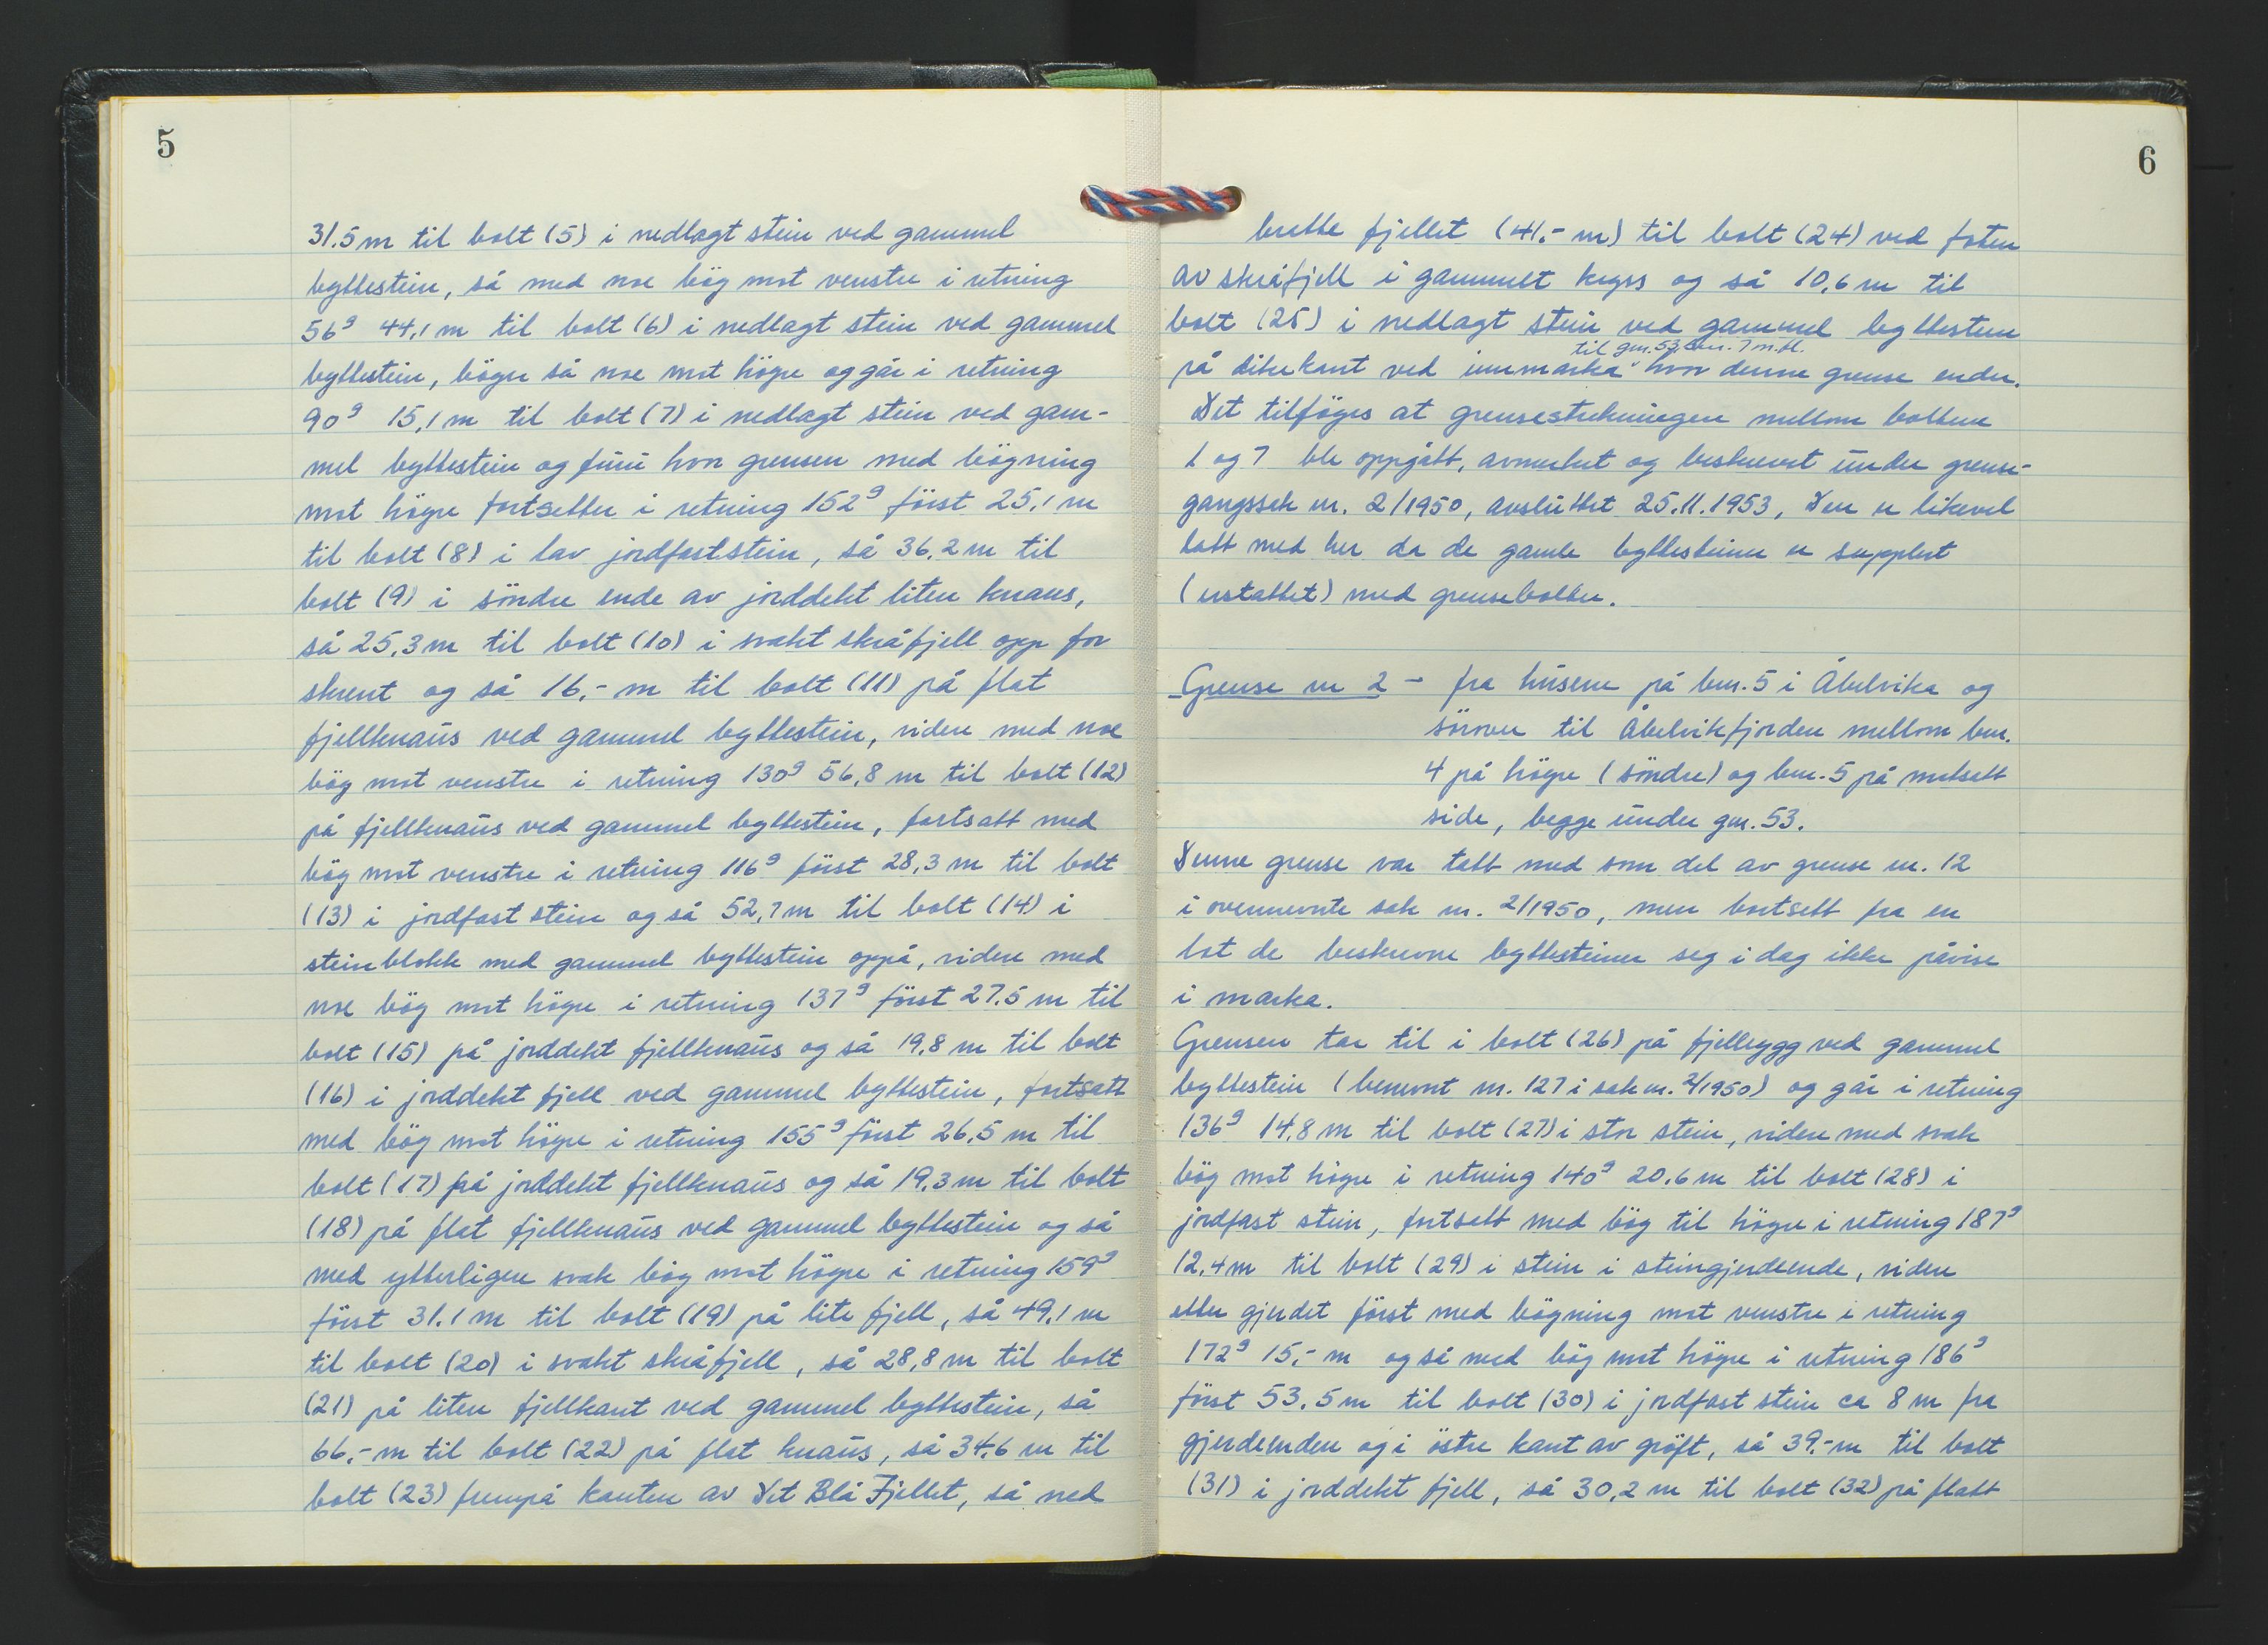 5
31.5 m til bolt (5) i nedlagt stein ved gammel
byttestein, så med noe bøg mot venstre i retning
56ᵍ 44,1 m til bolt (6) i nedlagt stein ved gammel
byttestein, bøger så noe mot høgre og går i retning
90ᵍ 15,1 m til bolt (7) i nedlagt stein ved gam-
mel byttestein og furu hvor grensen med bøgning
mot høgre fortsetter i retning 152ᵍ først 25,1 m
til bolt (8) i lav jordfast stein, så 36,2 m til
bolt (9) i søndre ende av jorddekt liten knaus,
så 25,3 m til bolt (10) i svakt skråfjell opp for
skrent og så 16,- m til bolt (11) på flat
fjellknaus ved gammel byttestein, videre med noe
bøg mot venstre i retning 130ᵍ 56,8 m til bolt (12)
på fjellknaus ved gammel byttestein, fortsatt med
bøg mot venstre i retning 116ᵍ først 28,3 m til bolt
(13) i jordfast stein og så 52,7 m til bolt (14) i
steinblokk med gammel byttestein oppå, videre med
noe bøg mot høgre i retning 137ᵍ først 27.5 m til
bolt (15) på jorddekt fjellknaus og så 19,8 m til bolt
(16) i jorddekt fjell ved gammel byttestein, fortsatt
med bøg mot høgre i retning 155ᵍ først 26,5 m til
bolt (17) på jorddekt fjellknaus og så 19.3 m til bolt
(18) på flat fjellknaus ved gammel byttestein og så
med ytterligere svak bøg mot høgre i retning 159ᵍ
først 31.1 m til bolt (19) på lite fjell, så 49,1 m
til bolt (20) i svakt skråfjell, så 28,8 m til bolt
(21) på liten fjellkant ved gammel byttestein, så
66,- m til bolt (22) på flat knaus, så 34,6 m til
bolt (23) frempå kanten av Det Blå Fjellet, så ned
6
bratte fjellet (41,- m) til bolt (24) ved foten
av skråfjell i gammelt kryss og så 10,6 m til
bolt (25) i nedlagt stein ved gammel byttestein
til gnr. 53, bnr. 7 m.fl.
på dikekant ved innmarka hvor denne grense ender.
Det tilføges at grensestrekningen mellom boltene
1 og 7 ble oppgått, avmerket og beskrevet under grense-
gangssak nr. 2/1950, avsluttet 25.11.1953, Den er likevel
tatt med her da de gamle byttesteiner er supplert
(erstattet) med grensebolter.
Grense nr 2 - fra husene på bnr. 5 i Åbelvika og
sørover til Åbelvikfjorden mellom bnr.
4 på høgre (søndre) og bnr. 5 på motsatt
side, begge under gnr. 53.
Denne grense var tatt med som del av grense nr. 12
i ovennevnte sak nr. 2/1950, men bortsett fra en
lot de beskrevne byttesteiner seg i dag ikke påvise
i marka.
Grensen tar til i bolt (26) på fjellrygg ved gammel
byttestein (benevnt nr. 127 i sak nr. 2/1950) og går i retning
136ᵍ 14,8 m til bolt (27) i stor stein, videre med svak
bøg mot høgre i retning 140ᵍ 20,6 m til bolt (28) i
jordfast stein, fortsatt med bøg til høgre i retning 187ᵍ
12,4 m til bolt (29) i stein i steingjerdeende, videre
etter gjerdet først med bøgning mot venstre i retning
172ᵍ 15,- m og så med bøg mot høgre i retning 186ᵍ
først 53.5 m til bolt (30) i jordfast stein ca 8 m fra
gjerdeenden og i østre kant av grøft, så 39,- m til bolt
(31) i jorddekt fjell, så 30,2 m til bolt (32) på flatt